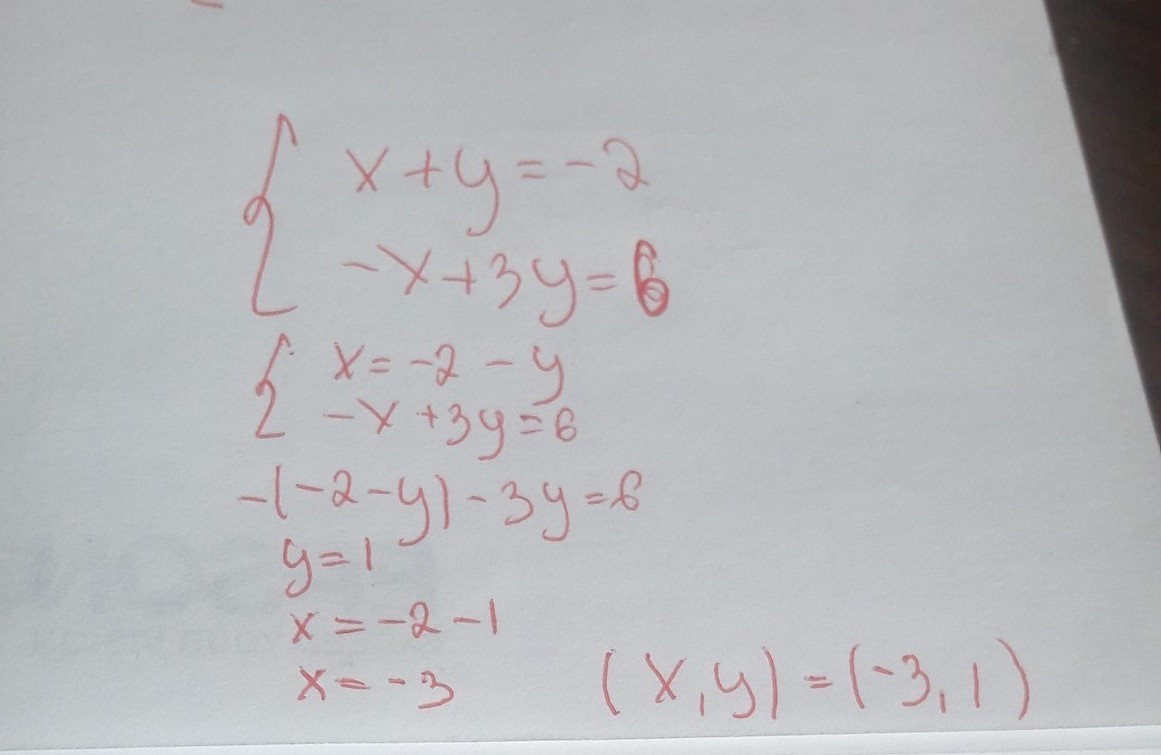 x+y=-2
-x+3y=6
x=-2-y
-x+3y=6
-(-2-y)-3y=6
y=1
x=-2-1
x=-3 (x,y)=(-3,1)